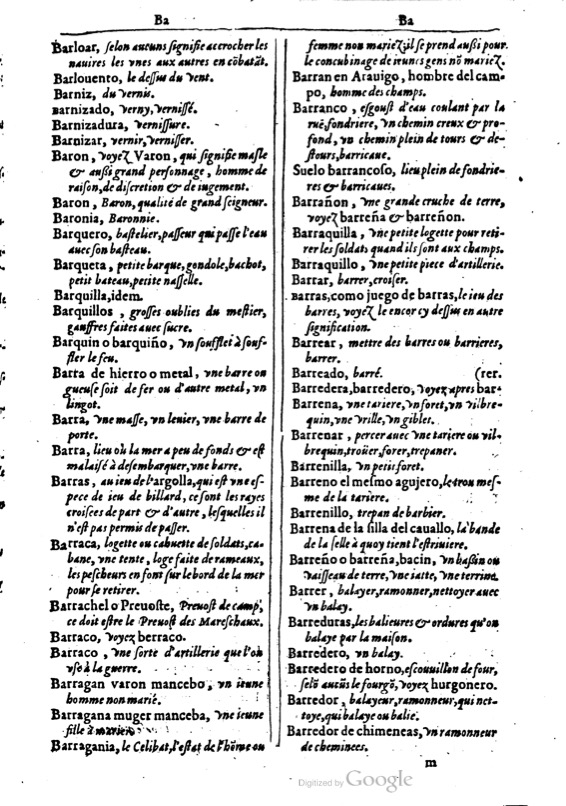 Ba
Barloar, selon aucuns signifie accrocher les
nauires les vnes aux autres en cõbatãt.
Barlouento, le dessus du vent.
Barniz, du vernis.
Barnizado, verny, vernissé.
Barnizadura, vernissure.
Barnizar, vernir, vernisser.
Baron, voyez Varon, qui signifie masle
& aussi grand personnage, homme de
raison, de discretion & de iugement.
Baron, Baron, qualité de grand seigneur.
Baronia, Baronnie.
Barquero, bastelier, passeur qui passe l'eau
auec son basteau.
Barqueta, petite barque, gondole, bachot,
petit bateau, petite nasselle.
Barquilla, idem.
Barquillos, grosses oublies du mestier,
gauffres faites auec sucre.
Barquin o barquiño, vn soufflet à souf-
fler le feu.
Barra de hierro o metal, vne barre ou
gueuse soit de fer ou d'autre metal, vn
lingot.
Barra, vne masse, vn leuier, vne barre de
porte.
Barra, lieu où la mer a peu de fonds & est
malaisé à desembarquer, vne barre.
Barras, au ieu de l'argolla, qui est vne es-
pece de ieu de billard, ce sont les rayes
croisees de part & d'autre, lesquelles il
n'est pas permis de passer.
Barraca, logette ou cabuette de soldats, ca-
bane, vne tente, loge faite de rameaux,
les pescheurs en font sur le bord de la mer
pour se retirer.
Barrachel o Preuoste, Preuost de camp,
ce doit estre le Preuost des Mareschaux.
Barraco, voyez berraco.
Barraco, vne sorte d'artillerie que l'on
vse à la guerre.
Barragan varon mancebo, vn ieune
homme non marié.
Barragana muger manceba, vne ieune
fille à
Barragania, le Celibat, l'estat de l'hõme ou
Ba
femme non mariez; il se prend aussi pour
le concubinage de ieunes gens nõ mariez.
Barran en Arauigo, hombre del cam-
po, homme des champs.
Barranco, esgoust d'eau coulant par la
rue, fondriere, vn chemin creux & pro-
fond, vn chemin plein de tours & de-
stours, barricaue.
Suelo barrancoso, lieu plein de fondrie-
res & barricaues.
Barrañon, vne grande cruche de terre,
voyez barreña & barreñon.
Barraquilla, vne petite logette pour reti-
rer les soldats quand ils sont aux champs.
Barraquillo, vne petite piece d'artillerie.
Barrar, barrer, croiser.
Barras, como juego de barras, le ieu des
barres, voyez le encor cy dessus en autre
signification.
Barrear, mettre des barres ou barrieres,
barrer.
Barreado, barré. (rer.
Barredera, barredero, voyez apres bar-
Barrena, vne tariere, vn foret, vn vilbre-
quin, vne vrille, vn gibles.
Barrenar, percer auec vne tariere ou vil-
brequin, troüer, forer, trepaner.
Barrenilla, vn petis foret.
Barreno el mesmo agujero, le trou mes-
me de la tariere.
Barrenillo, trepan de barbier.
Barrena de la silla del cauallo, la bande
de la selle à quoy tient l'estriuiere.
Barreño o barreña, bacin, vn bassin ou
vaisseau de terre, vne iatte, vne terrine.
Barrer, balayer, ramonner, nettoyer auec
vn balay.
Barreduras, les balieures & ordures qu'on
balaye par la maison.
Barredero, vn balay.
Barredero de horno, escouuillon de four,
selõ aucũs le fourgõ, voyez hurgonero.
Barredor, balayeur, ramonneur, qui net-
toye, qui balaye ou balie.
Barredor de chimeneas, vn ramonneur
de cheminees.
m
Digitized by Google